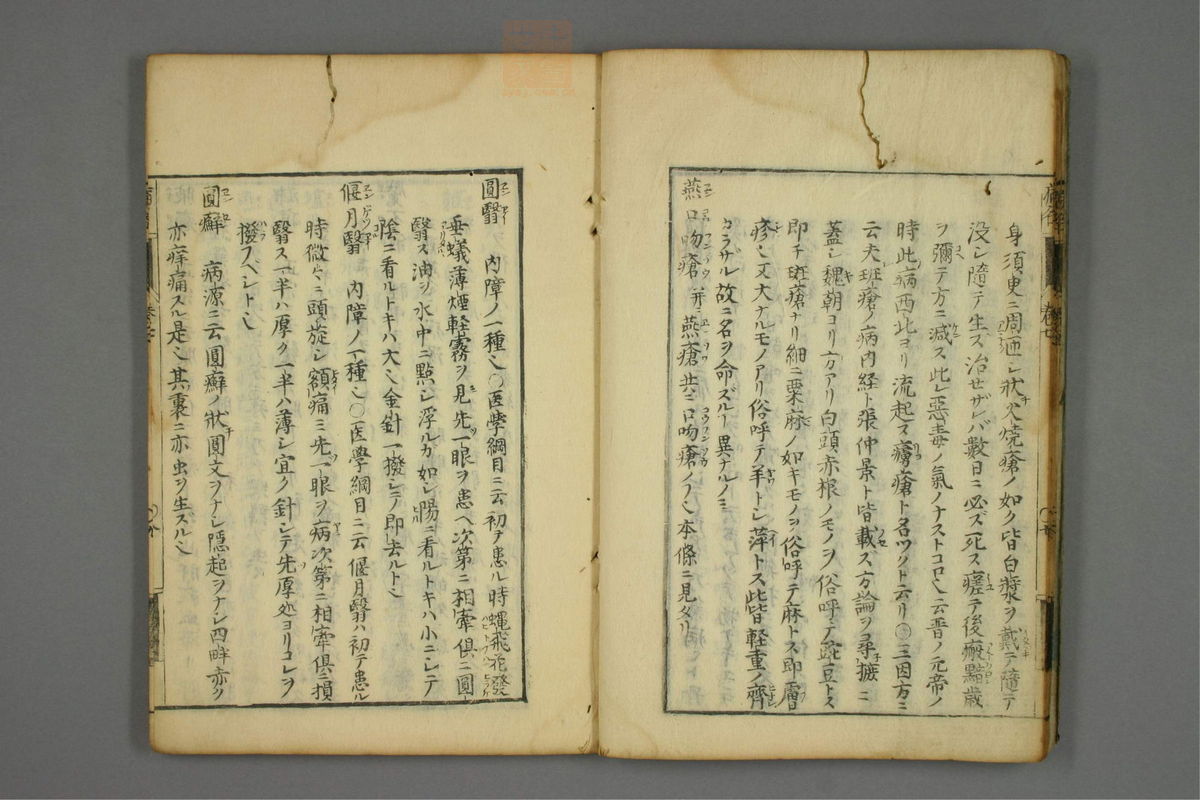 身須臾ニ周匝シ狀火燒瘡ノ如ク皆白漿ヲ戴テ隨テ
没シ隨テ生ズ治セザレバ數日ニ必ズ死ス瘥テ後瘢黯歳
ヲ彌テ方ニ滅ス此レ惡毒ノ氣ノナストコロ也云晋ノ元帝ノ
時此病西北ヨリ流起ス虜瘡ト名ツクト云リ〇三因方ニ
云夫斑瘡ノ病内経ト張仲景ト皆載ス方論ヲ尋擄ニ
蓋シ魏朝ヨリ方アリ白頭赤根ノモノヲ俗呼テ豌豆トス
即チ斑瘡ナリ細ニ粟麻ノ如キモノヲ俗呼テ麻トス即膚
疹也又大ナルモノアリ俗呼テ羊トシ萍トス此皆軽重ノ齊
カラザル故ニ名ヲ命ズルヿ異ナルノミ
燕口吻瘡并ニ燕瘡共ニ口吻瘡ノヿ也本條ニ見タリ
圓翳 内障ノ一種也〇医學綱目ニ云初テ患ル時蝿飛花發
垂蟻薄煙軽霧ヲ見先一眼ヲ患ヘ次第ニ相牽倶ニ圓
翳ス油ヲ水中ニ點シ浮ルカ如シ陽ニ看ルトキハ小ニシテ
陰ニ看ルトキハ大也金針一撥シテ即去ルト也
偃月翳 内障ノ一種也〇医學綱目ニ云偃月翳ハ初テ患ル
時微々ニ頭旋シ額痛ミ先一眼ヲ病次第ニ相牽倶ニ損
翳ス一半ハ厚ク一半ハ薄シ宜ク針シテ先厚処ヨリコレヲ
撥フベシト也
圓癬 病源ニ云圓癬ノ狀圓文ヲナシ隠起ヲナシ四畔赤ク
亦痒痛スル是也其裏ニ亦虫ヲ生ズル也